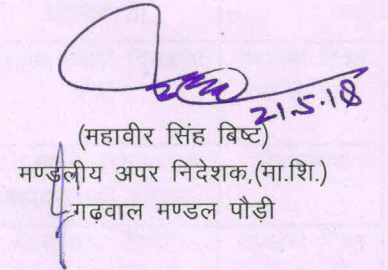 21.5.18
(महावीर सिंह बिष्ट)
मण्डलीय अपर निदेशक,(मा.शि.)
गढ़वाल मण्डल पौड़ी